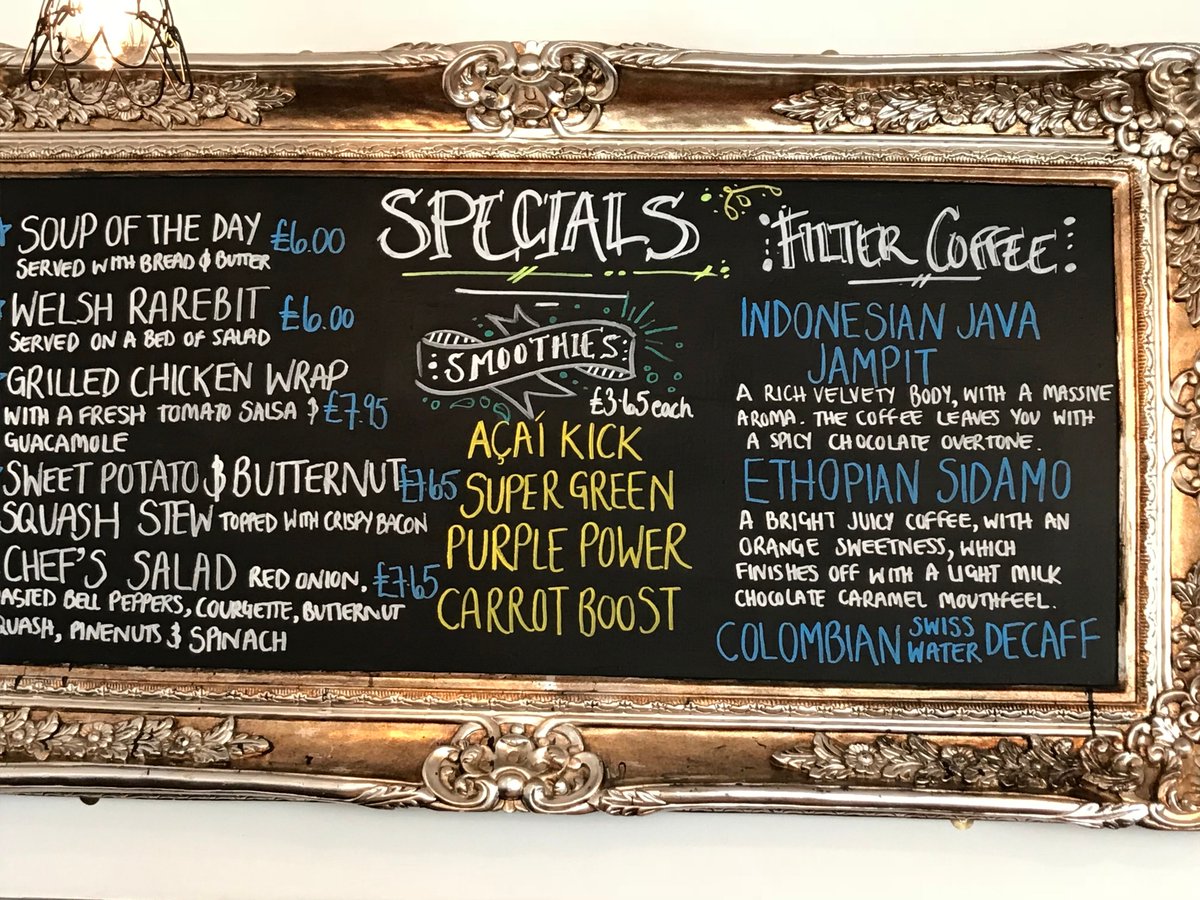 SPECIALS
SOUP OF THE DAY £6.00
SERVED WITH BREAD & BUTTER
WELSH RAREBIT £6.00
SERVED ON A BED OF SALAD
GRILLED CHICKEN WRAP
WITH A FRESH TOMATO SALSA & £7.95
GUACAMOLE
SWEET POTATO & BUTTERNUT £7.65
SQUASH STEW TOPPED WITH CRISPY BACON
CHEF'S SALAD RED ONION. £7.65
ASTED BELL PEPPERS, COURGETTE, BUTTERNUT
QUASH, PINENUTS & SPINACH
SMOOTHIES
£3.65 each
AÇAÍ KICK
SUPER GREEN
PURPLE POWER
CARROT BOOST
FILTER COFFEE
INDONESIAN JAVA
JAMPIT
A RICH VELVETY BODY, WITH A MASSIVE
AROMA. THE COFFEE LEAVES YOU WITH
A SPICY CHOCOLATE OVERTONE.
ETHOPIAN SIDAMO
A BRIGHT JUICY COFFEE, WITH AN
ORANGE SWEETNESS, WHICH
FINISHES OFF WITH A LIGHT MILK
CHOCOLATE CARAMEL MOUTHFEEL.
COLOMBIAN SWISS WATER DECAFF